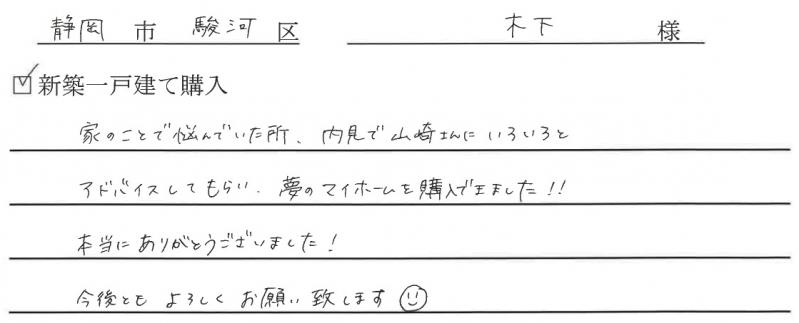 静岡 市 駿河 区 木下 様
☑新築一戸建て購入
家のことで悩んでいた所、内見で山崎さんにいろいろと
アドバイスしてもらい、夢のマイホームを購入できました!!
本当にありがとうございました!
今後とも よろしく お願い致します☺